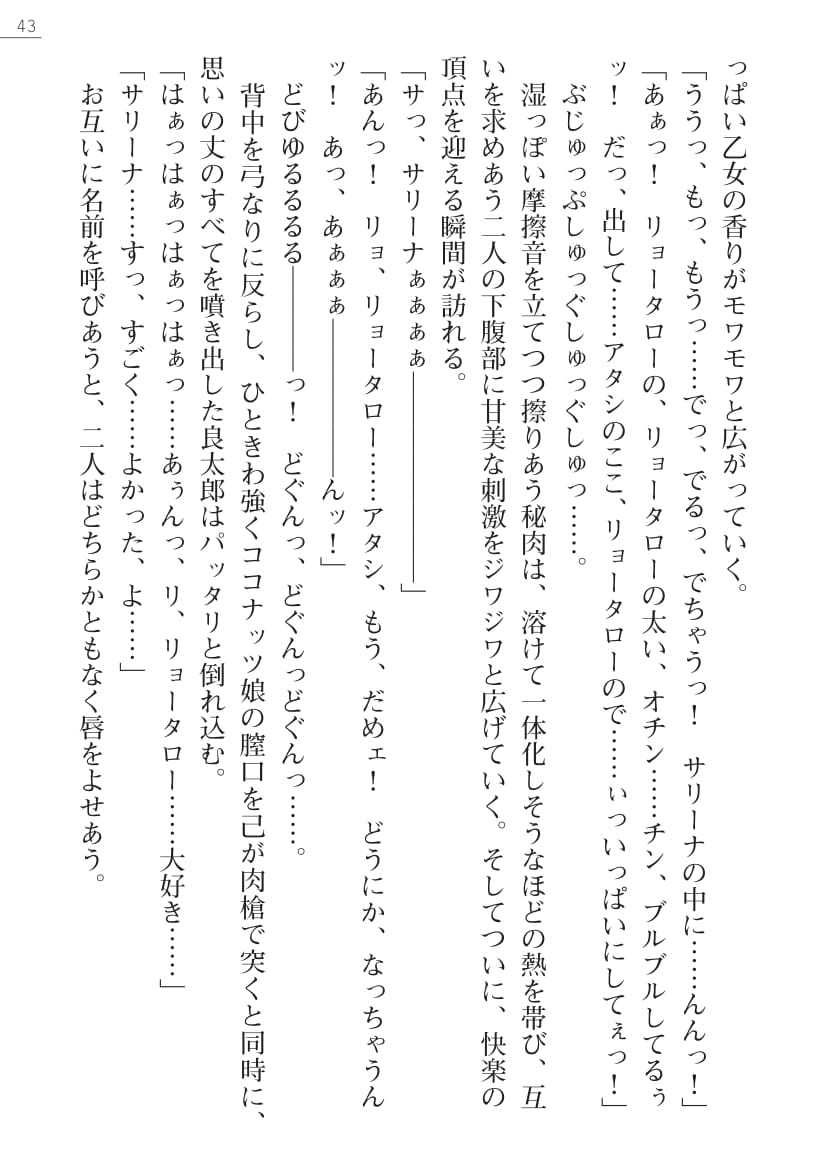 43
っぱい乙女の香りがモワモワと広がっていく。
「ううっ、もっ、もうっ……でっ、でるっ、でちゃうっ！　サリーナの中に……んんっ！」
「あぁっ！　リョータローの、リョータローの太い、オチン……チン、ブルブルしてるぅ
ッ！　だっ、出して……アタシのここ、リョータローので……ぃっいっぱいにしてぇっ！」
ぶじゅっぷしゅっぐしゅっぐしゅっ……。
湿っぽい摩擦音を立てつつ擦りあう秘肉は、溶けて一体化しそうなほどの熱を帯び、互
いを求めあう二人の下腹部に甘美な刺激をジワジワと広げていく。そしてついに、快楽の
頂点を迎える瞬間が訪れる。
「サっ、サリーナぁぁぁぁ――――――」
「あんっ！　リョ、リョータロー……アタシ、もう、だめェ！　どうにか、なっちゃうん
ッ！　あっ、あぁぁぁ――――んッ！」
どびゆるるるる――――っ！　どぐんっ、どぐんっどぐんっ……。
背中を弓なりに反らし、ひときわ強くココナッツ娘の膣口を己が肉槍で突くと同時に、
思いの丈のすべてを噴き出した良太郎はパッタリと倒れ込む。
「はぁっはぁっはぁっはぁっ……あぅんっ、リ、リョータロー……大好き……」
「サリーナ……すっ、すごく……よかった、よ……」
お互いに名前を呼びあうと、二人はどちらかともなく唇をよせあう。